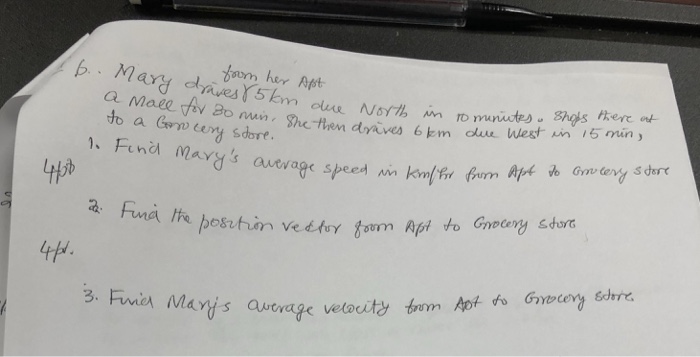 from her Apt
6. Mary draves 5km due North in 10 minutes. Shops there at
a Mall for 30 min. She then draves 6 km due West in 15 min,
to a Grocery store.
1. Find Mary's average speed in km/hr from Apt to Grocery store
2. Find the position vector from Apt to Grocery store
4pt.
3. Find Mary's average velocity from Apt to Grocery store.